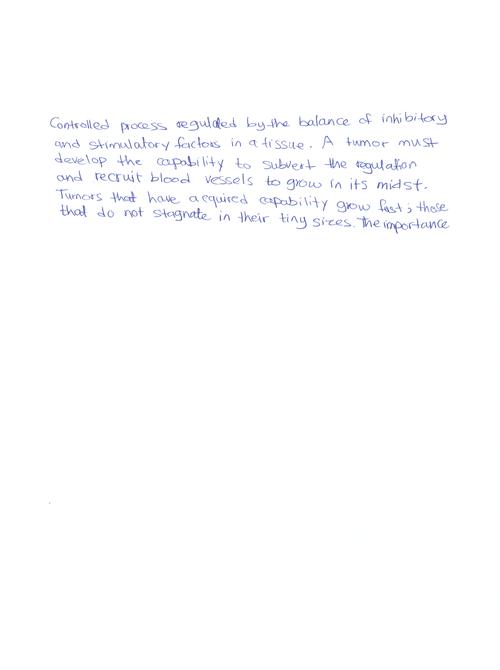 Controlled process regulated by the balance of inhibitory
and stimulatory factors in a tissue. A tumor must
develop the capability to subvert the regulation
and recruit blood vessels to grow in its midst.
Tumors that have acquired capability grow fast; those
that do not stagnate in their tiny sizes. The importance